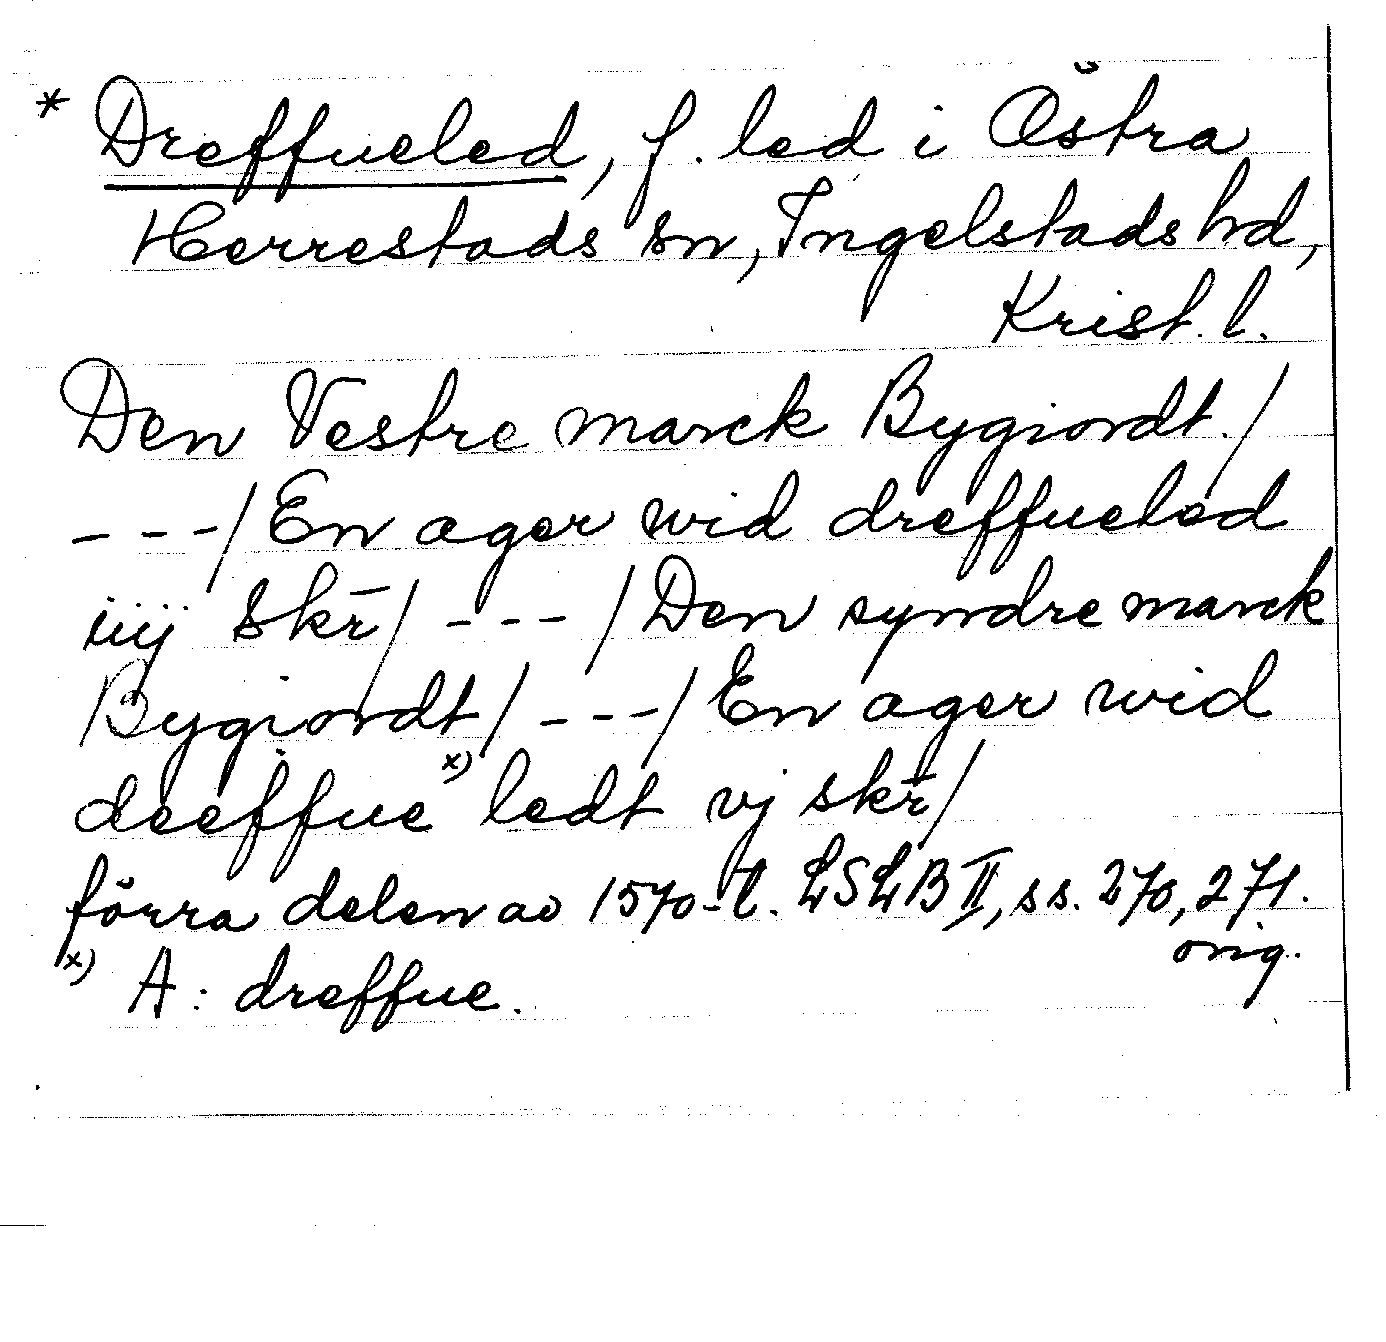 * Dreffueled, f. led i Östra
Herrestads sn, Ingelstads hd,
Krist. l.
Den Vestre marck Bygiordt./
---/ En ager wid dreffueled
iiij skr̄/ --- / Den syndre marck
Bygiordt/ ---/ En ager wid
deeffue x) ledt vj skr̄/
förra delen av 1570-t. LSLB II, ss. 270, 271.
orig.
x) A: dreffue.